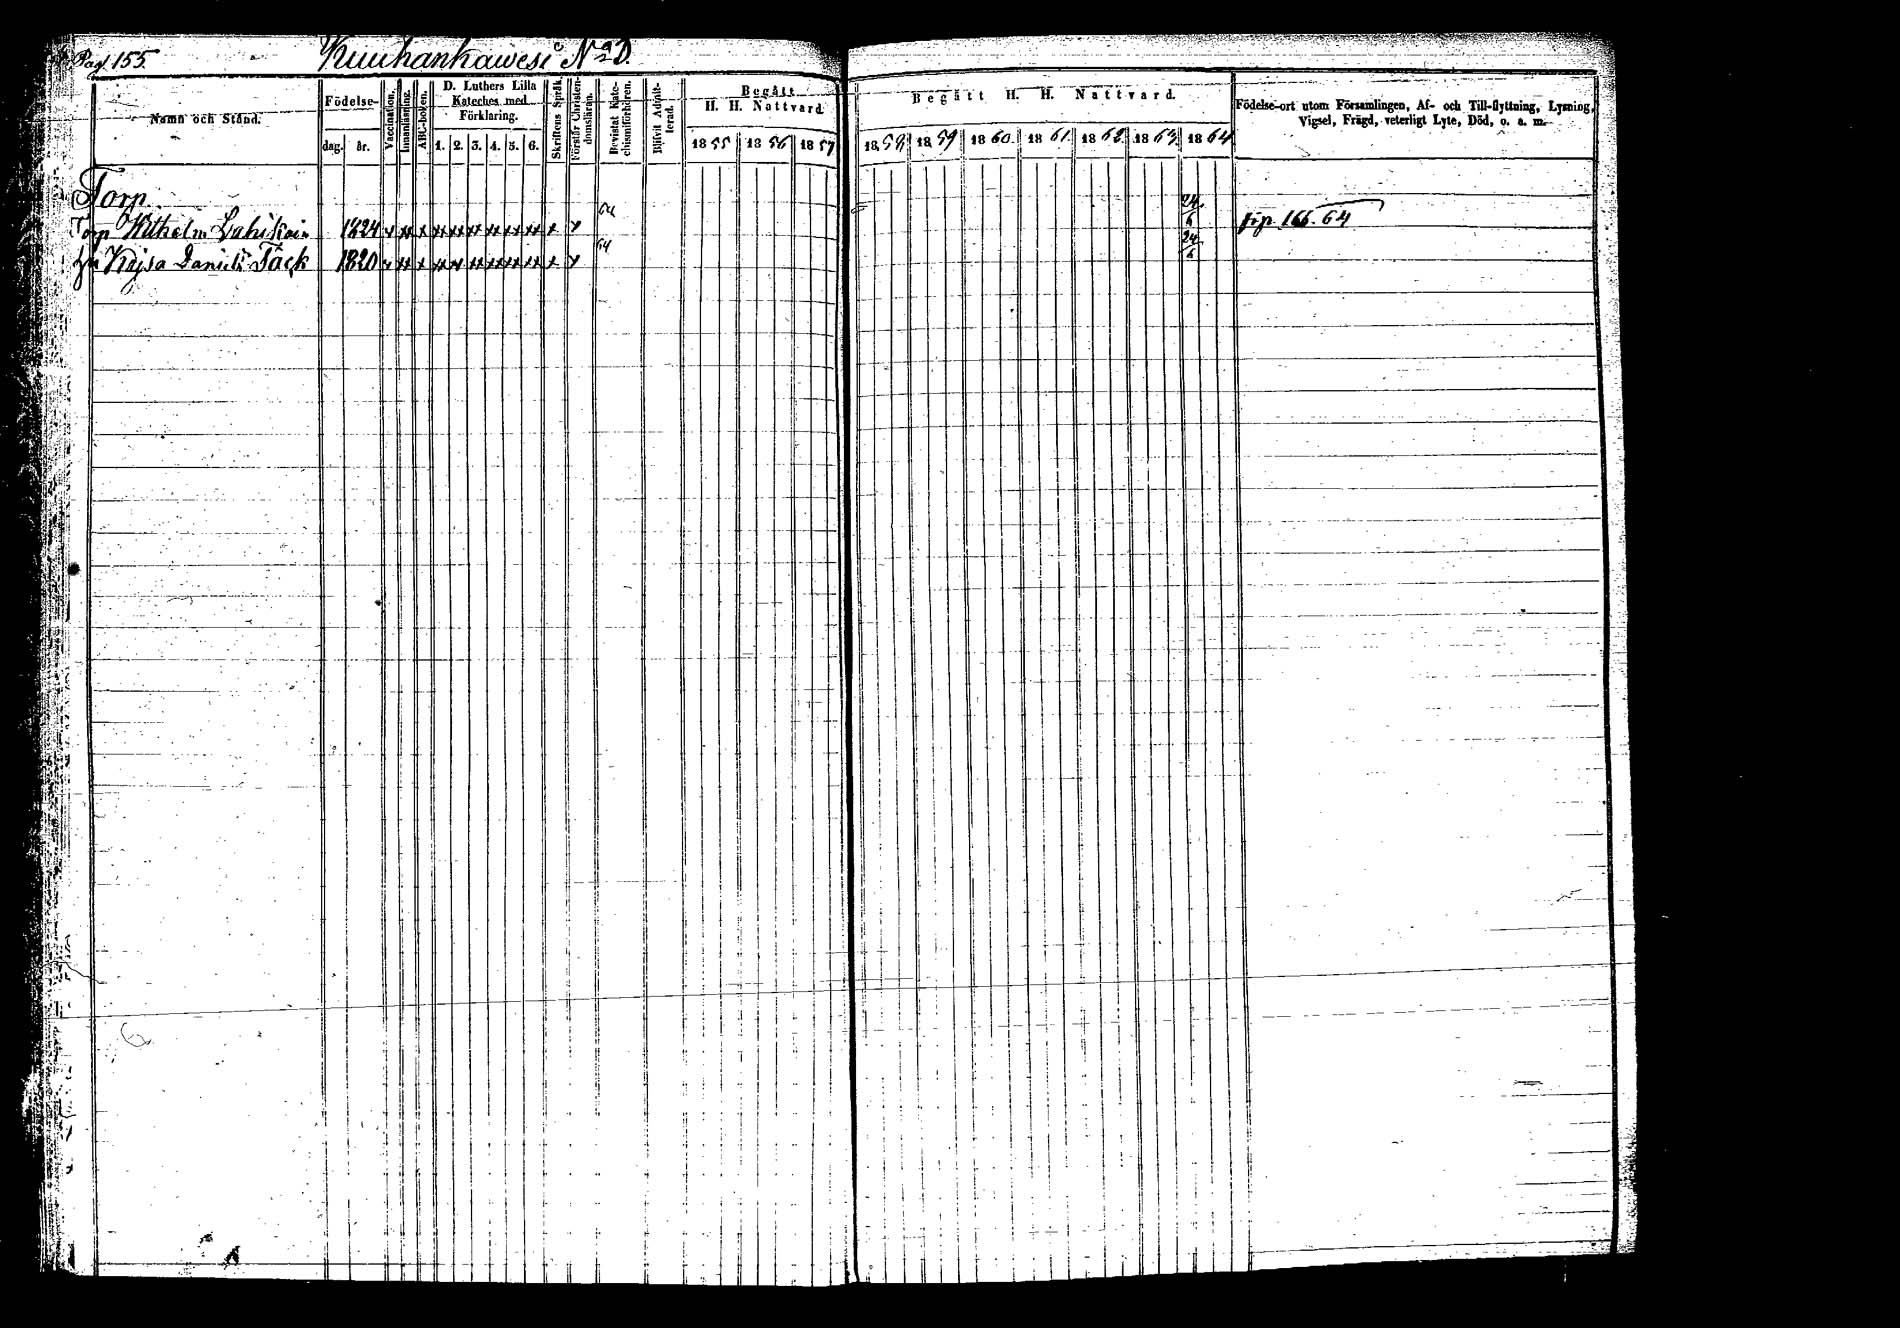 Pag 155.
Kuuhankawesi No D.
Namn och Stånd.
Födelse-
dag. år.
Vaccination.
Innanläsning.
ABC-boken.
D. Luthers Lilla
Kateches med
Förklaring.
1. 2. 3. 4. 5. 6.
Skriftens Språk.
Förstår Christen-
domsläran.
Bevistat Kate-
chismiförhören.
Blifvit Admit-
terad.
Begått
H. H. Nattvard
1855 1856 1857
Begått H. H. Nattvard.
1858 1859 1860. 1861. 1862. 1863. 1864
Födelse-ort utom Församlingen, Af- och Till-flyttning, Lysning,
Vigsel, Frägd, veterligt Lyte, Död, o. s. m.
Torp
Torp Wilhelm 1824 x xx x xx xx xx xx xx xx x x 64 24/6 166. 64
Kajsa 1820 x xx x xx xx xx xx xx xx x x 64 24/6